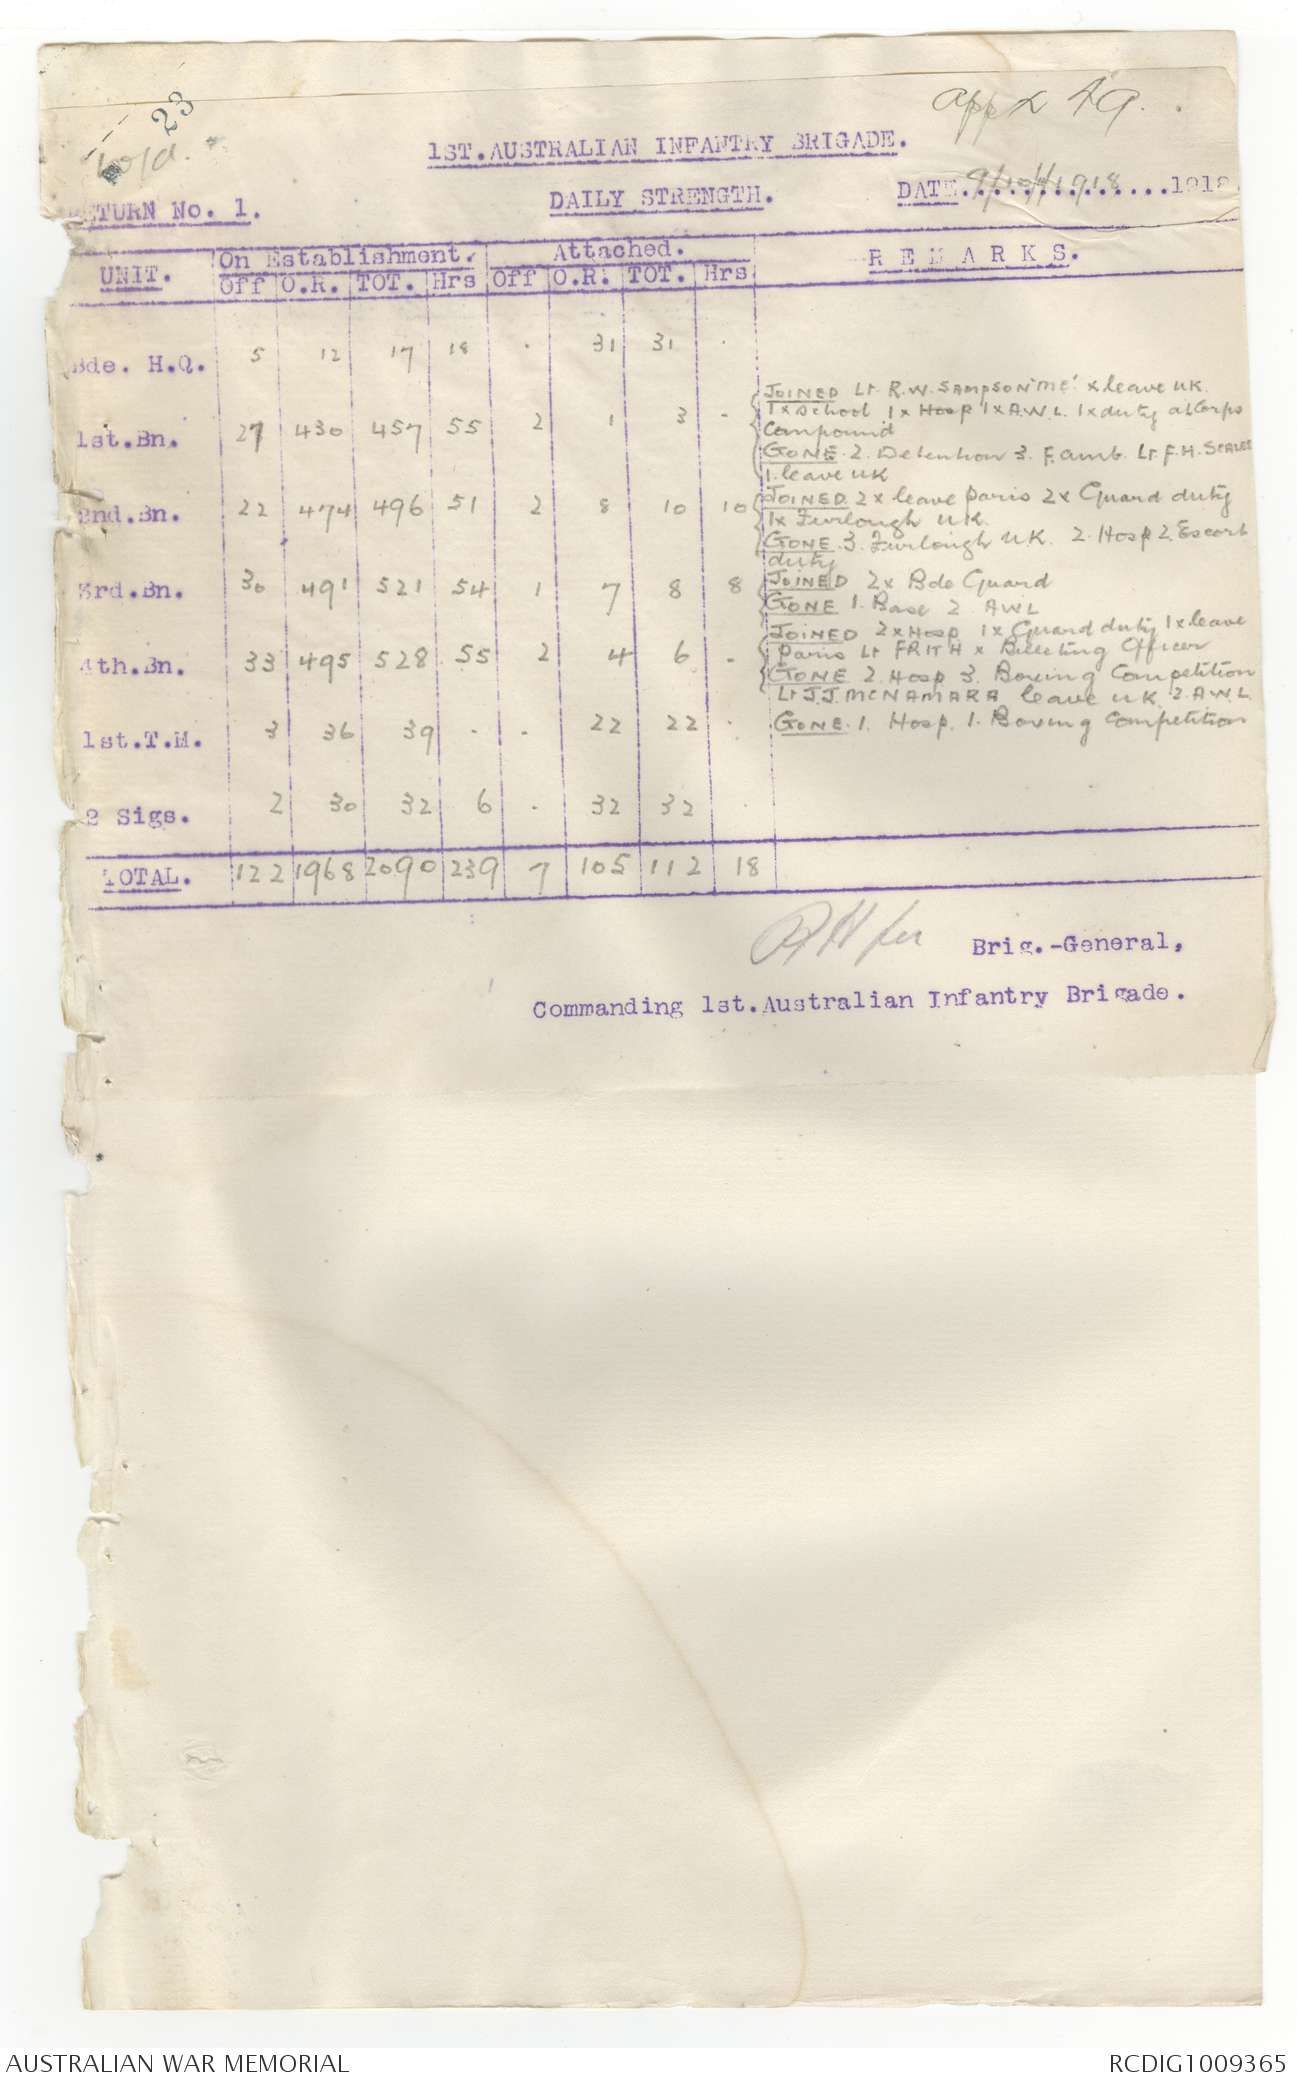 23
app x 49.
1ST.AUSTRALIAN INFANTRY BRIGADE.
DAILY STRENGTH.
DATE 9/10/1918 1918.
RETURN No. 1.
UNIT. On Establishment. Attached. R E M A R K S.
Off O.R. TOT. Hrs Off O.R. TOT. Hrs
Bde. H.Q. 5 12 17 18 . 31 31 .
1st.Bn. 27 430 457 55 2 1 3 -
JOINED Lt R.W. SAMPSON 'ME' x leave UK.
1 x School 1 x Hosp 1 x A.W.L. 1 x duty at Corps
Compound
GONE. 2. Detention 3. F. amb. Lt F.H. SCALES
1. leave UK
2nd.Bn. 22 474 496 51 2 8 10 10
JOINED 2 x leave Paris 2 x Guard duty
1 x Furlough UK.
GONE. 3. Furlough UK. 2. Hosp 2. Escort
duty
3rd.Bn. 30 491 521 54 1 7 8 8
JOINED 2 x Bde Guard
GONE 1. Base 2. AWL
4th.Bn. 33 495 528 55 2 4 6 -
JOINED 2 x Hosp 1 x Guard duty 1 x leave
Paris Lt FRITH x Billeting Officer
GONE 2. Hosp 3. Boxing Competition
Lt J.J. McNAMARA leave UK 2. AWL
1st.T.M. 3 36 39 . . 22 22 .
GONE. 1. Hosp. 1. Boxing Competition
2 Sigs. 2 30 32 6 . 32 32
TOTAL. 122 1968 2090 239 7 105 112 18
for Brig.-General,
Commanding 1st.Australian Infantry Brigade.
AUSTRALIAN WAR MEMORIAL
RCDIG1009365